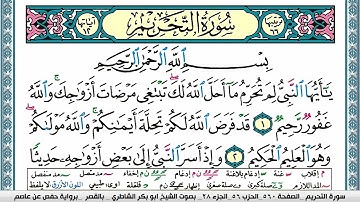 سُورَةُ التَّحْرِيمِ
بِسْمِ ٱللَّهِ ٱلرَّحْمَٰنِ ٱلرَّحِيمِ
يَٰٓأَيُّهَا ٱلنَّبِىُّ لِمَ تُحَرِّمُ مَآ أَحَلَّ ٱللَّهُ لَكَ ۖ تَبْتَغِى مَرْضَاتَ أَزْوَٰجِكَ ۚ وَٱللَّهُ
غَفُورٌ رَّحِيمٌ ١ قَدْ فَرَضَ ٱللَّهُ لَكُمْ تَحِلَّةَ أَيْمَٰنِكُمْ ۚ وَٱللَّهُ مَوْلَىٰكُمْ ۖ
وَهُوَ ٱلْعَلِيمُ ٱلْحَكِيمُ ٢ وَإِذْ أَسَرَّ ٱلنَّبِىُّ إِلَىٰ بَعْضِ أَزْوَٰجِهِۦ حَدِيثًا
سورة التحريم الصفحة ٥٦٠ الحزب ٥٦ الجزء ٢٨ بصوت الشيخ أبو بكر الشاطري بالقصر رواية حفص عن عاصم